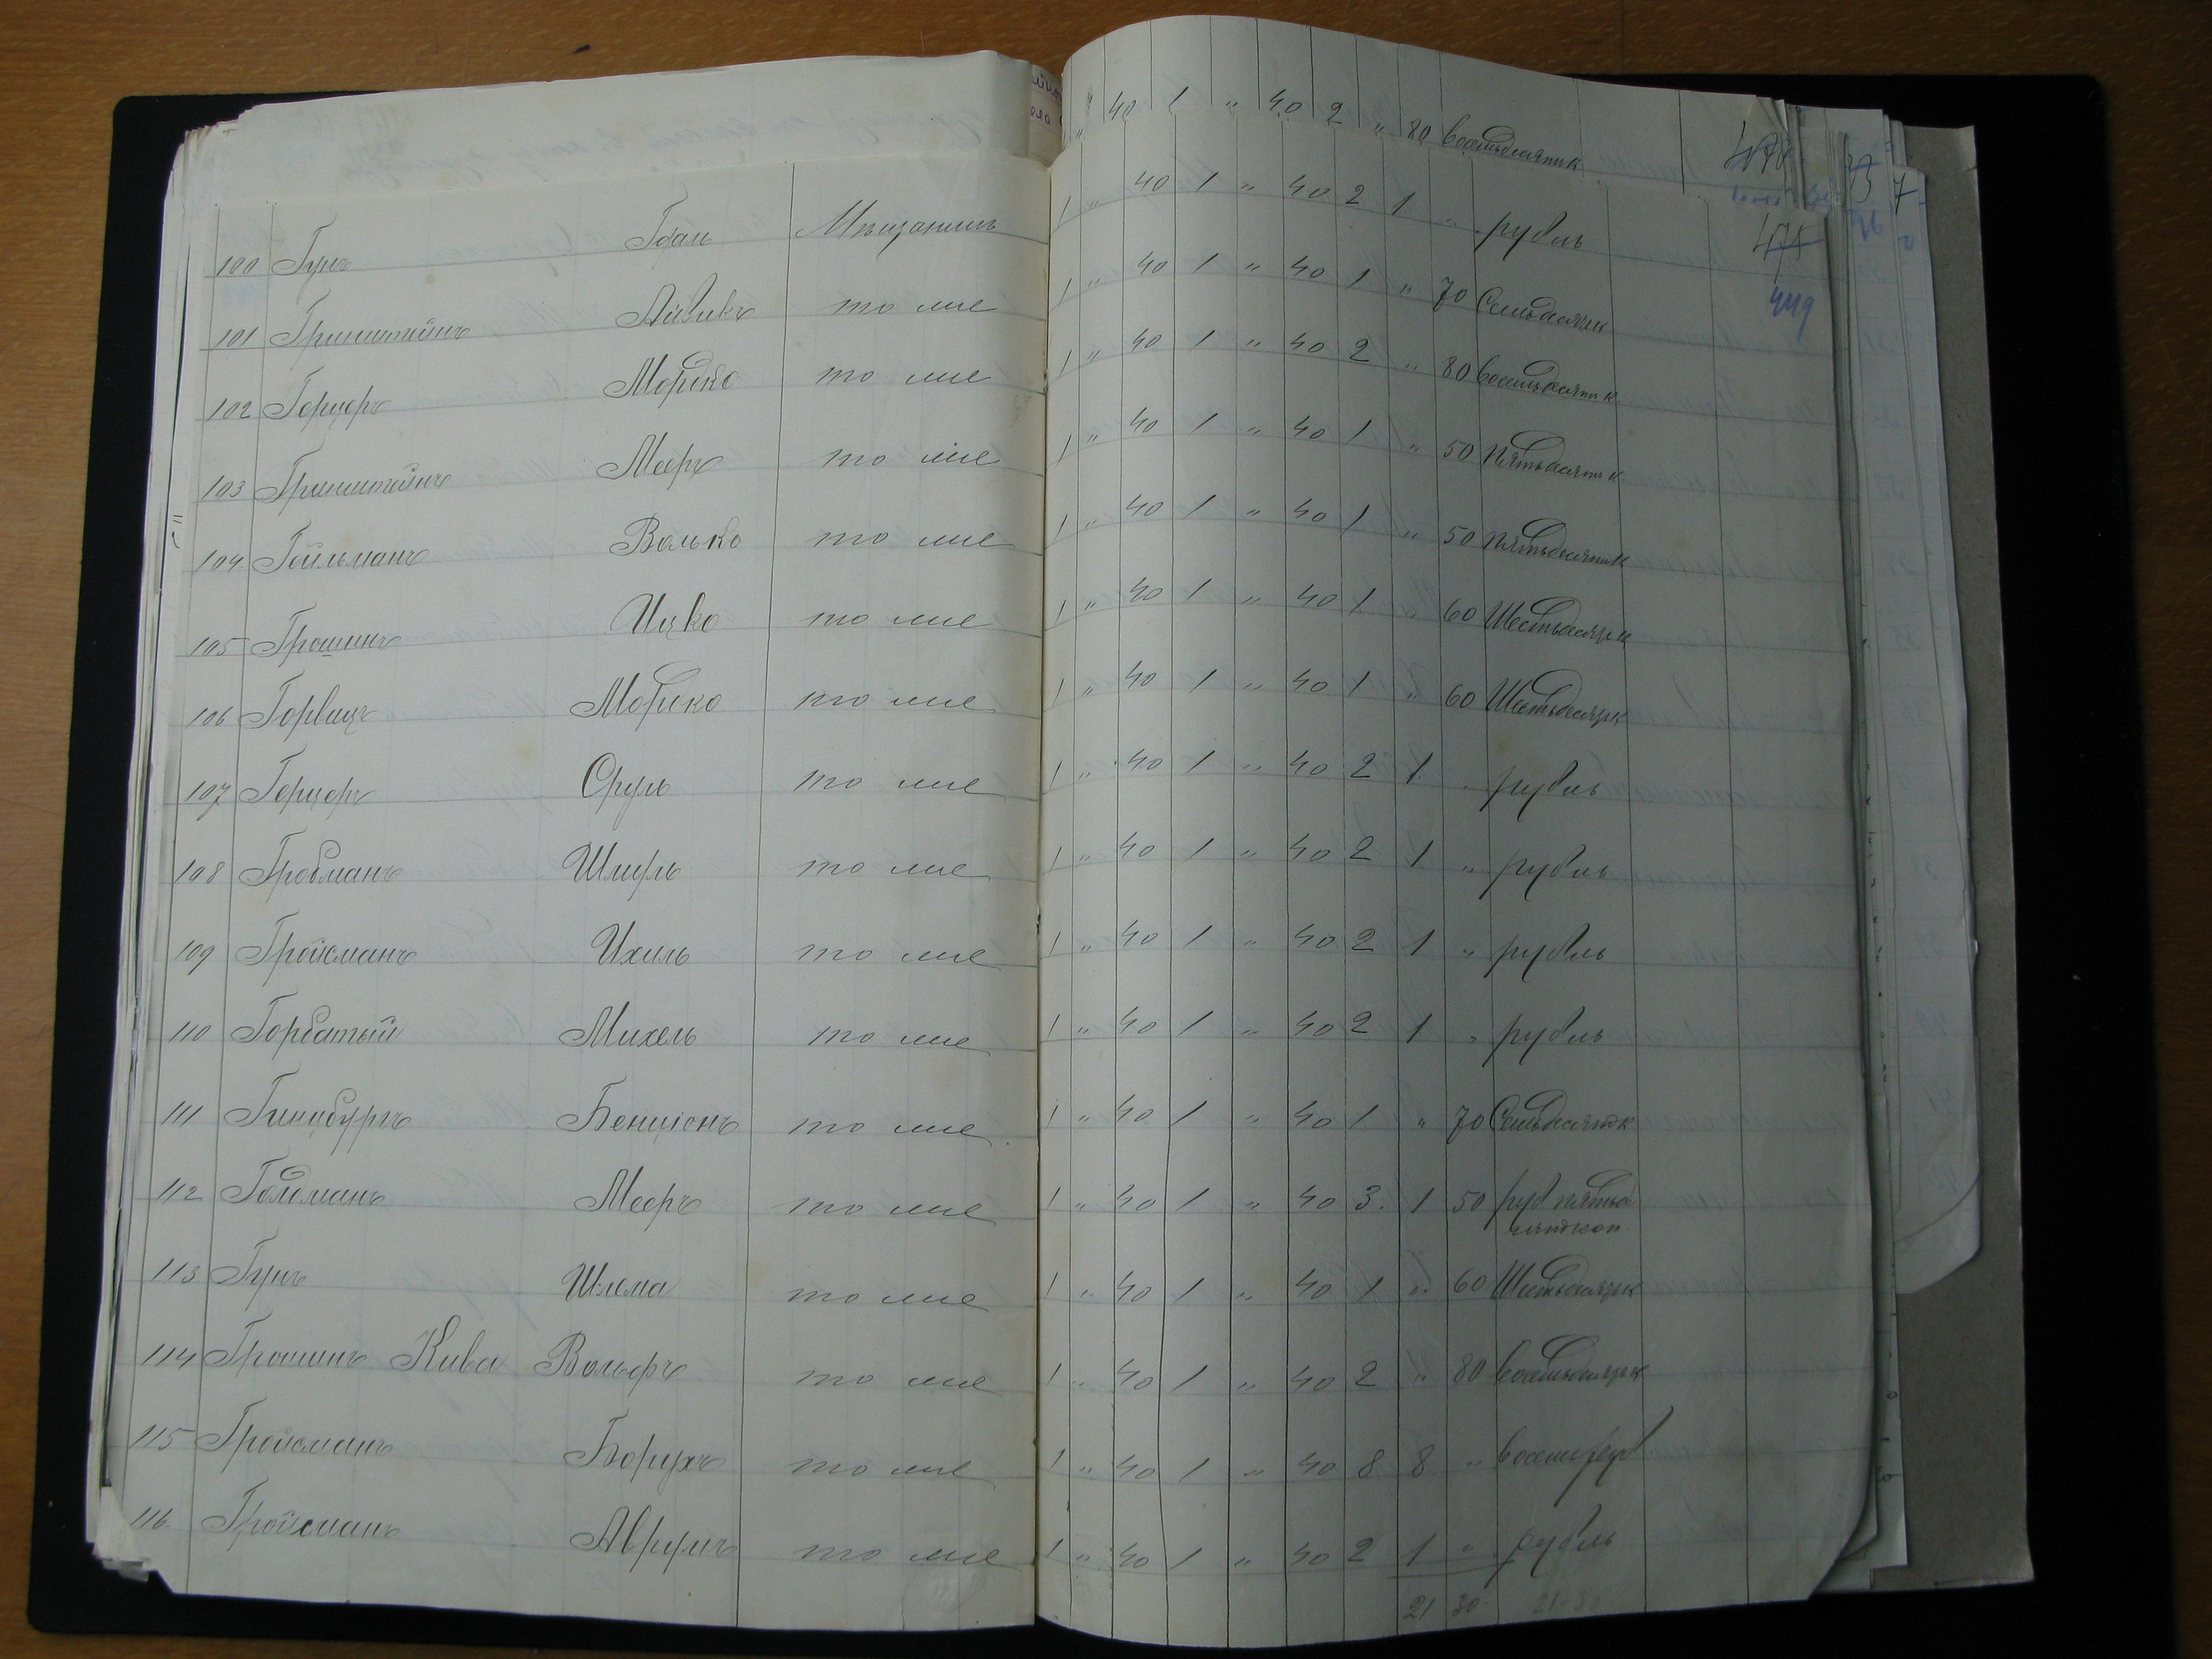 " 40 1 " 40 2 " 80 восемьдесят к
100 Гунъ Гдаль Мѣщанинъ 1 " 40 1 " 40 2 1 " рубль
101 Гринштейнъ Айзикъ то же 1 " 40 1 " 40 1 " 70 Семьдесят к
102 Герцеръ Мошко то же 1 " 40 1 " 40 2 " 80 восемьдесят к
103 Гринштейнъ Мееръ то же 1 " 40 1 " 40 1 " 50 Пятьдесят к
104 Гойльманъ Волько то же 1 " 40 1 " 40 1 " 50 Пятьдесят к
105 Грошинъ Ицко то же 1 " 40 1 " 40 1 " 60 Шестьдесят к
106 Горвицъ Мошко то же 1 " 40 1 " 40 1 " 60 Шестьдесят к
107 Герцеръ Сруль то же 1 " 40 1 " 40 2 1 " рубль
108 Гробманъ Шмуль то же 1 " 40 1 " 40 2 1 " рубль
109 Гройсманъ Ихиль то же 1 " 40 1 " 40 2 1 " рубль
110 Горбатый Михель то же 1 " 40 1 " 40 2 1 " рубль
111 Гинцбургъ Бенціонъ то же 1 " 40 1 " 40 1 " 70 Семьдесят к
112 Мееръ то же 1 " 40 1 " 40 3 1 50 руб пятьде
сят коп
113 Гунъ Шлема то же 1 " 40 1 " 40 1 " 60 Шестьдесят к
114 Грошинъ Кива Вольфъ то же 1 " 40 1 " 40 2 " 80 восемьдесят к
115 Гройсманъ Борухъ то же 1 " 40 1 " 40 8 8 " восемь руб
116 Гройсманъ Аврумъ то же 1 " 40 1 " 40 2 1 " рубль
21 30 21 30
449